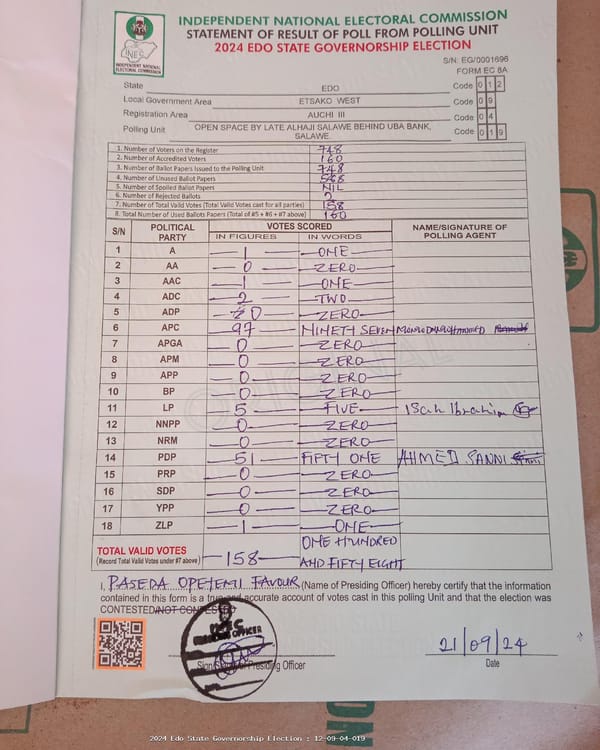 INDEPENDENT NATIONAL ELECTORAL COMMISSION
STATEMENT OF RESULT OF POLL FROM POLLING UNIT
2024 EDO STATE GOVERNORSHIP ELECTION
INEC
INDEPENDENT NATIONAL ELECTORAL COMMISSION
S/N: EG/0001696
FORM EC 8A
State EDO Code 0 1 2
Local Government Area ETSAKO WEST Code 0 9
Registration Area AUCHI III Code 0 4
Polling Unit OPEN SPACE BY LATE ALHAJI SALAWE BEHIND UBA BANK, SALAWE. Code 0 1 9
1. Number of Voters on the Register 748
2. Number of Accredited Voters 160
3. Number of Ballot Papers Issued to the Polling Unit 748
4. Number of Unused Ballot Papers 588
5. Number of Spoiled Ballot Papers NIL
6. Number of Rejected Ballots 2
7. Number of Total Valid Votes (Total Valid Votes cast for all parties) 158
8. Total Number of Used Ballots Papers (Total of #5 + #6 + #7 above) 160
S/N POLITICAL PARTY VOTES SCORED NAME/SIGNATURE OF POLLING AGENT
IN FIGURES IN WORDS
1 A 1 ONE
2 AA 0 ZERO
3 AAC 1 ONE
4 ADC 2 TWO
5 ADP 0 ZERO
6 APC 97 NINETY SEVEN
7 APGA 0 ZERO
8 APM 0 ZERO
9 APP 0 ZERO
10 BP 0 ZERO
11 LP 5 FIVE Isah Ibrahim
12 NNPP 0 ZERO
13 NRM 0 ZERO
14 PDP 51 FIFTY ONE AHMED SANNI
15 PRP 0 ZERO
16 SDP 0 ZERO
17 YPP 0 ZERO
18 ZLP 1 ONE
TOTAL VALID VOTES (Record Total Valid Votes under #7 above) 158 ONE HUNDRED AND FIFTY EIGHT
I, PASEDA OPEYEMI FAVOUR (Name of Presiding Officer) hereby certify that the information
contained in this form is a true and accurate account of votes cast in this polling Unit and that the election was
CONTESTED/NOT CONTESTED
21/09/24
Presiding Officer Date
2024 Edo State Governorship Election : 12-09-04-019